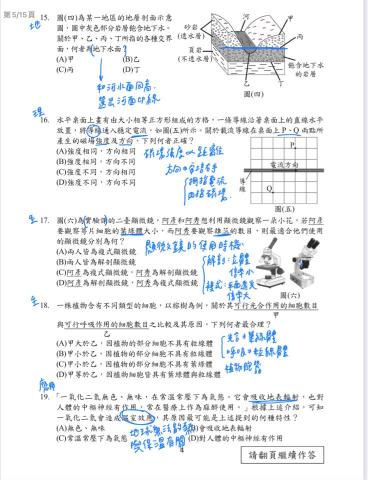 第5/15頁
地
15. 圖(四)為某一地區的地層剖面示意
圖，圖中灰色部分岩層飽含地下水。
關於甲、乙、丙、丁所指的各種交界
面，何者為地下水面？
(A)甲 (B)乙
(C)丙 (D)丁
砂岩
(透水層)
頁岩
(不透水層)
河
甲
乙
丙
丁
飽含地下水
的岩層
圖(四)
理
16. 水平桌面上畫有由大小相等正方形組成的方格，一條導線沿著桌面上的直線水平
放置，將導線通入穩定電流，如圖(五)所示。關於載流導線在桌面上P、Q兩點所
產生的磁場強度及方向，下列何者正確？
(A)強度相同，方向相同
(B)強度相同，方向不同
(C)強度不同，方向相同
(D)強度不同，方向不同
P
電流方向
導
線
Q
圖(五)
生
17. 圖(六)為實驗課的二臺顯微鏡，阿彥和阿秀想利用顯微鏡觀察一朵小花，若阿彥
要觀察萼片細胞的葉綠體大小，而阿秀要觀察雄蕊的數目，則最適合他們使用
的顯微鏡分別為何？
(A)兩人皆為複式顯微鏡
(B)兩人皆為解剖顯微鏡
(C)阿彥為複式顯微鏡，阿秀為解剖顯微鏡
(D)阿彥為解剖顯微鏡，阿秀為複式顯微鏡
圖(六)
生
18. 一株植物含有不同類型的細胞，以榕樹為例，關於其可行光合作用的細胞數目
甲
與可行呼吸作用的細胞數目之比較及其原因，下列何者最合理？
乙
(A)甲大於乙，因植物的部分細胞不具有粒線體
(B)甲小於乙，因植物的部分細胞不具有粒線體
(C)甲小於乙，因植物的部分細胞不具有葉綠體
(D)甲等於乙，因植物細胞皆具有葉綠體與粒線體
19. 「一氧化二氮無色、無味，在常溫常壓下為氣態。它會吸收地表輻射，也對
人體的中樞神經有作用，常在醫療上作為麻醉使用。」根據上述介紹，可知
一氧化二氮會造成溫室效應，其原因最可能是上述提到的何種特性？
(A)無色、無味
(C)常溫常壓下為氣態 (D)對人體的中樞神經有作用
請翻頁繼續作答